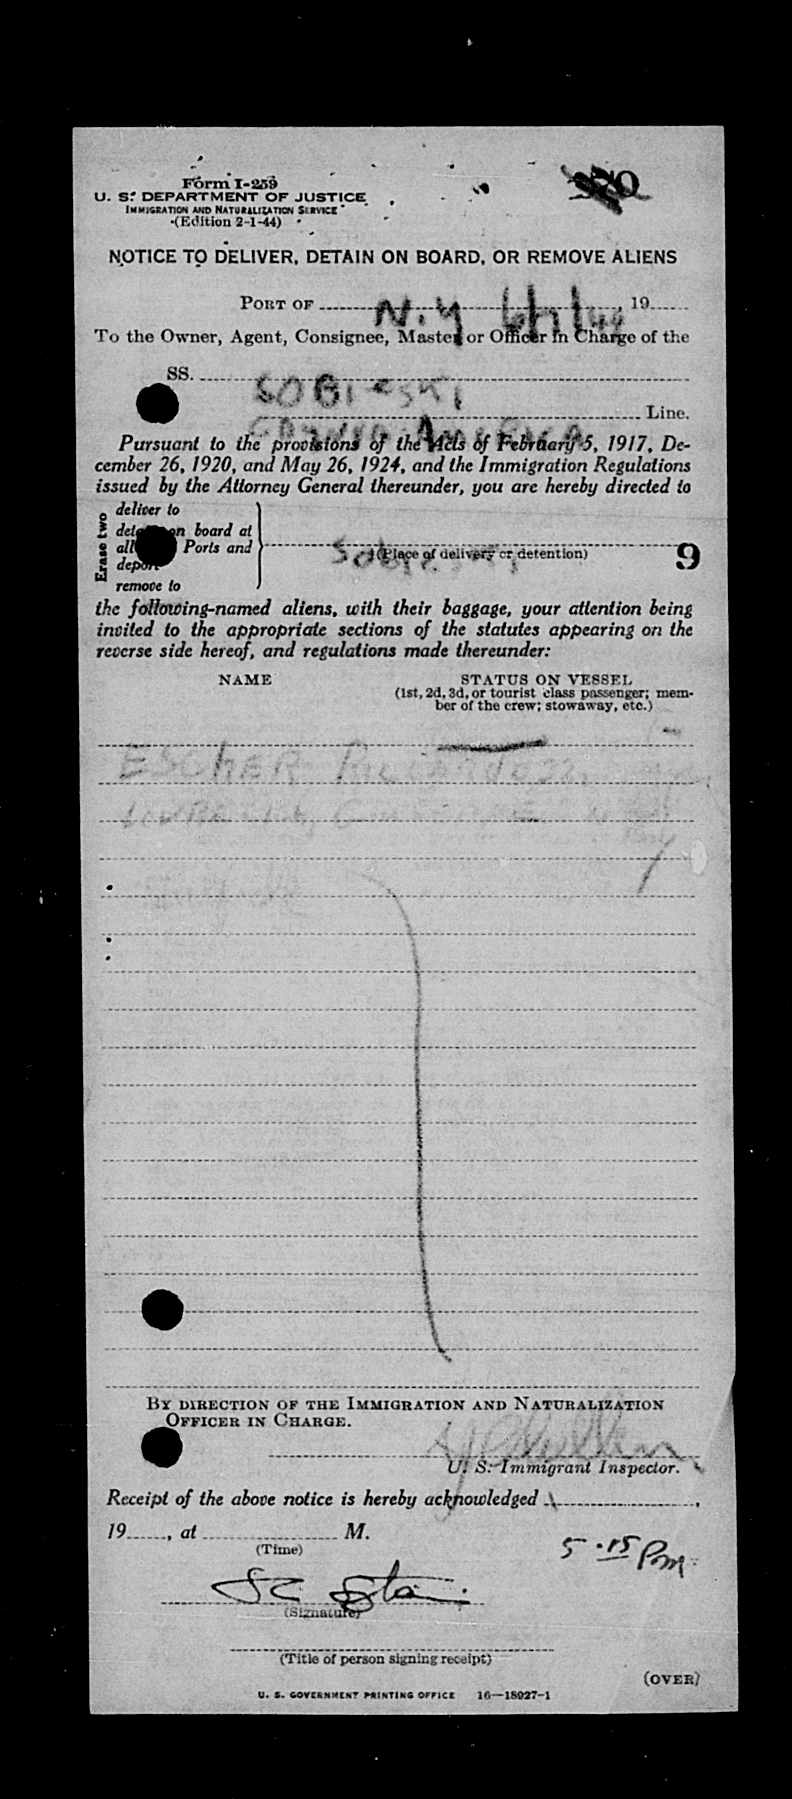 Form I-259
U. S. DEPARTMENT OF JUSTICE
IMMIGRATION AND NATURALIZATION SERVICE
(Edition 2-1-44)
NOTICE TO DELIVER, DETAIN ON BOARD, OR REMOVE ALIENS
PORT OF N.Y , 19
To the Owner, Agent, Consignee, Master or Officer in Charge of the
SS. SOBIESKI
Line.
Pursuant to the provisions of the Acts of February 5, 1917, De-
cember 26, 1920, and May 26, 1924, and the Immigration Regulations
issued by the Attorney General thereunder, you are hereby directed to
Erase two
deliver to
detain on board at
all Ports and
deport
remove to
Sobieski
(Place of delivery or detention)
9
the following-named aliens, with their baggage, your attention being
invited to the appropriate sections of the statutes appearing on the
reverse side hereof, and regulations made thereunder:
NAME STATUS ON VESSEL
(1st, 2d, 3d, or tourist class passenger; mem-
ber of the crew; stowaway, etc.)
ESCHER
BY DIRECTION OF THE IMMIGRATION AND NATURALIZATION
OFFICER IN CHARGE.
U. S. Immigrant Inspector.
Receipt of the above notice is hereby acknowledged ,
19 , at M.
(Time)
5.15 Pm
(Signature)
(Title of person signing receipt)
(OVER)
U. S. GOVERNMENT PRINTING OFFICE 16—18927-1